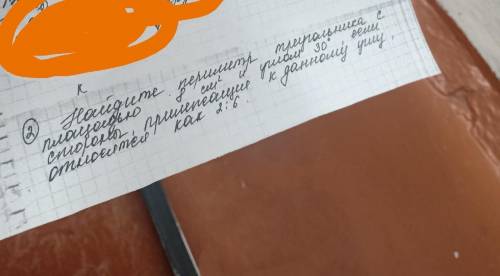 к
② Найдите периметр треугольника с
площадью 3 см² и углом 30° если
стороны, прилежащие к данному углу,
относятся как 2:6.